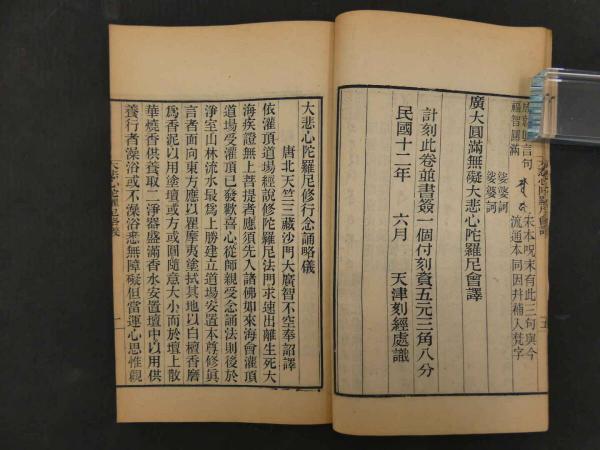 真言句
宋本咒末有此三句與今
福智圓滿
流通本同因并補入梵字
娑婆訶
娑婆訶
廣大圓滿無礙大悲心陀羅尼會譯
計刻此卷並書簽一個付刻資五元三角八分
民國十二年 六月 天津刻經處識
大悲心陀羅尼修行念誦略儀
唐北天竺三藏沙門大廣智不空奉詔譯
依灌頂道場經說修陀羅尼法門求速出離生死大
海疾證無上菩提者應須先入諸佛如來海會灌頂
道場受灌頂已發歡喜心從師親受念誦法則後於
淨室山林流水最爲上勝建立道場安置本尊修眞
言者面向東方應以瞿摩夷塗拭其地以白檀香磨
爲香泥以用塗壇或方或圓隨意大小而於壇上散
華燒香供養取二淨器盛滿香水安置壇中以用供
養行者澡浴或不澡浴悉無障礙但當運心思惟觀
一